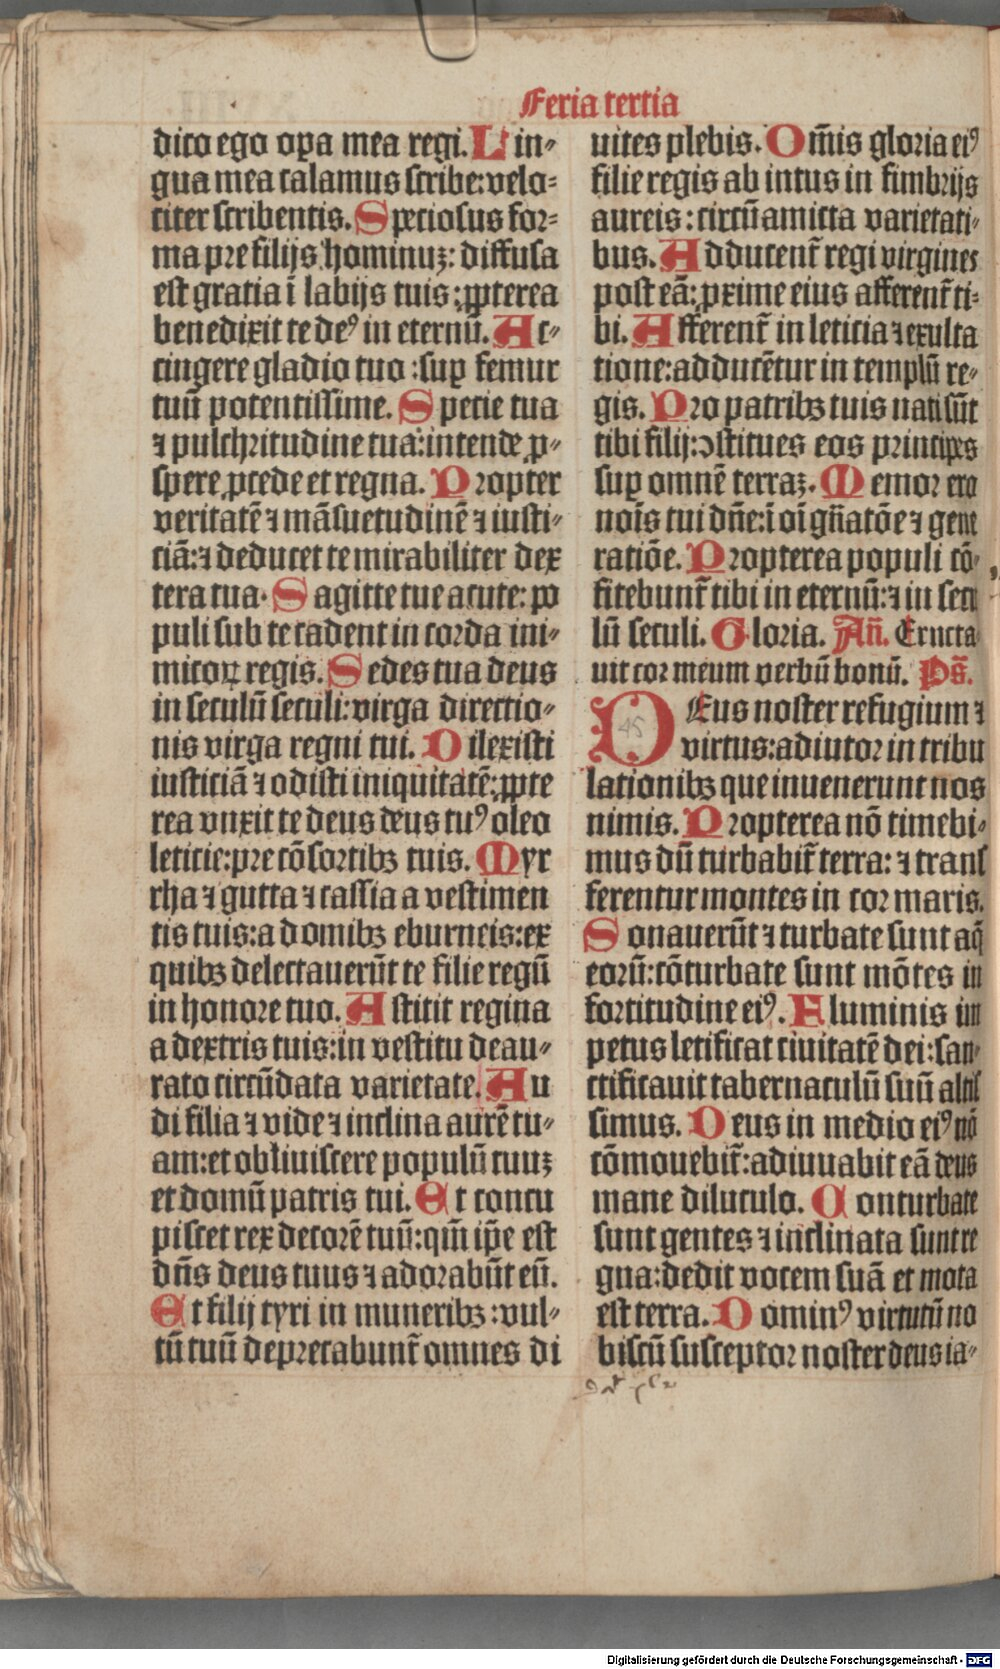 Feria tertia
dico ego opa mea regi. Lin⸗
gua mea calamus scribe: velo⸗
citer scribentis. Speciosus for⸗
ma pre filijs hominuꝫ: diffusa
est gratia ī labijs tuis: ꝓpterea
benedixit te deꝰ in eternū. Ac⸗
cingere gladio tuo: suꝑ femur
tuū potentissime. Specie tua
⁊ pulchritudine tua: intende ꝓ⸗
spere ꝓcede et regna. Propter
veritatē ⁊ māsuetudinē ⁊ iusti⸗
ciā: ⁊ deducet te mirabiliter dex
tera tua. Sagitte tue acute: po
puli sub te cadent in corda ini⸗
micoꝝ regis. Sedes tua deus
in seculū seculi: virga directio⸗
nis virga regni tui. Dilexisti
iusticiā ⁊ odisti iniquitatē: ꝓpte
rea vnxit te deus deus tuꝰ oleo
leticie: pre cōsortibꝫ tuis. Myr
rha ⁊ gutta ⁊ cassia a vestimen
tis tuis: a domibꝫ eburneis: ex
quibꝫ delectauerūt te filie regū
in honore tuo. Astitit regina
a dextris tuis: in vestitu deau⸗
rato circūdata varietate. Au
di filia ⁊ vide ⁊ inclina aurē tu⸗
am: et obliuiscere populū tuuꝫ
et domū patris tui. Et concu
piscet rex decorē tuū: qm̄ ip̄e est
dn̄s deus tuus ⁊ adorabūt eū.
Et filij tyri in muneribꝫ: vul⸗
tū tuū deprecabunt̄ omnes di
uites plebis. Om̄is gloria eiꝰ
filie regis ab intus in fimbrijs
aureis: circūamicta varietati⸗
bus. Adducent̄ regi virgines
post eā: ꝓxime eius afferent̄ ti⸗
bi. Afferent̄ in leticia ⁊ exulta
tione: adducētur in templū re⸗
gis. Pro patribꝫ tuis nati sūt
tibi filij: ↄstitues eos principes
suꝑ omnē terraꝫ. Memor ero
nois̄ tui dn̄e: ī oī gn̄atōe ⁊ gene
ratiōe. Propterea populi cō⸗
fitebunt̄ tibi in eternū: ⁊ in secu
lū seculi. Gloria. An̄. Eructa
uit cor meum verbū bonū. Ps̄.
DEus noster refugium ⁊
45
virtus: adiutor in tribu
lationibꝫ que inuenerunt nos
nimis. Propterea nō timebi⸗
mus dū turbabit̄ terra: ⁊ trans
ferentur montes in cor maris.
Sonauerūt ⁊ turbate sunt aq̄
eorū: cōturbate sunt mōtes in
fortitudine eiꝰ. Fluminis im
petus letificat ciuitatē dei: san⸗
ctificauit tabernaculū suū altis
simus. Deus in medio eiꝰ nō
cōmouebit̄: adiuuabit eā deus
mane diluculo. Conturbate
sunt gentes ⁊ inclinata sunt re
gna: dedit vocem suā et mota
est terra. Dominꝰ virtutū no
biscū susceptor noster deus ia⸗
Digitalisierung gefördert durch die Deutsche Forschungsgemeinschaft - DFG